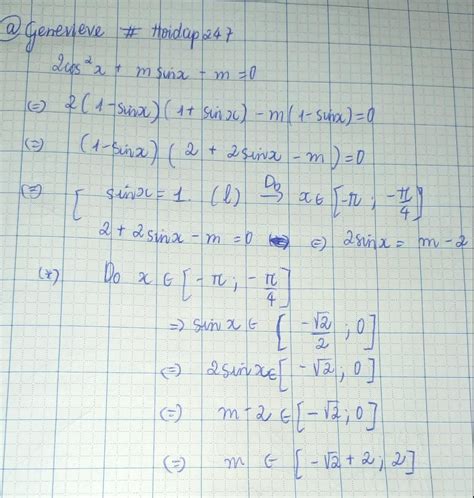 @Genevieve # Hoidap247
2cos²x + m sinx - m = 0
(=) 2(1-sinx)(1+sinx) - m(1-sinx) = 0
(=) (1-sinx)(2 + 2sinx - m) = 0
(=) [ sinx = 1 (l) →^{Do} x ∈ [-π ; -π/4]
2 + 2sinx - m = 0 (=) 2sinx = m - 2
(*) Do x ∈ [-π ; -π/4]
=) sinx ∈ [-√2/2 ; 0]
(=) 2sinx ∈ [-√2 ; 0]
(=) m - 2 ∈ [-√2 ; 0]
(=) m ∈ [-√2 + 2 ; 2]